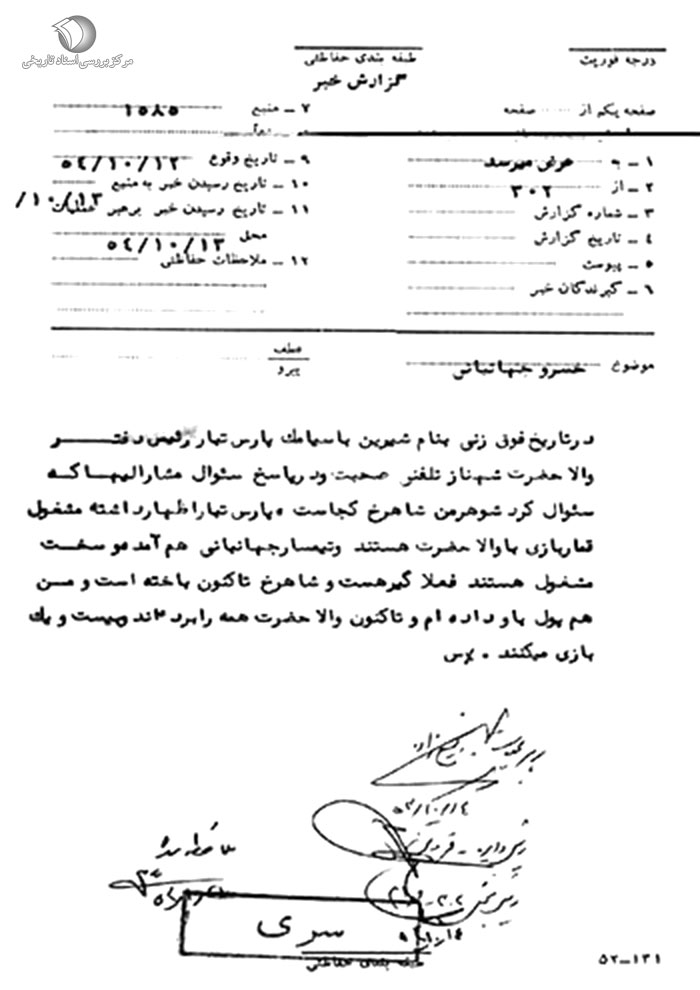 مرکز بررسی اسناد تاریخی
درجه فوریت
طبقه بندی حفاظتی
گزارش خبر
صفحه یکم از صفحه
۱ ـ به عرض میرسد
۲ ـ از ۳۰۲
۳ ـ شماره گزارش
۴ ـ تاریخ گزارش
۵ ـ پیوست
۶ ـ گیرندگان خبر
۷ ـ منبع ۱۵۸۵
۹ ـ تاریخ وقوع ۵۴/۱۰/۱۲
۱۰ ـ تاریخ رسیدن خبر به منبع /۱۰/۱۳
۱۱ ـ تاریخ رسیدن خبر برهبر عملیات
محل ۵۴/۱۰/۱۳
۱۲ ـ ملاحظات حفاظتی
موضوع خسرو جهانبانی
عطف
پیرو
در تاریخ فوق زنی بنام شیرین با سیامك پارس تبار رئیس دفتر
والاحضرت شهناز تلفنی صحبت و در پاسخ سئوال مشارالیها که
سئوال کرد شوهر من شاهرخ کجاست ، پارس تبار اظهار داشته مشغول
قماربازی با والاحضرت هستند و تیمسار جهانبانی هم آمده و سخت
مشغول هستند فعلا گیر هست و شاهرخ تاکنون باخته است و من
هم پول باو داده ام و تاکنون والاحضرت همه را برده اند و بیست و یك
بازی میکنند .
ملاحظه شد
سری
طبقه بندی حفاظتی
۵۲ـ۱۳۱